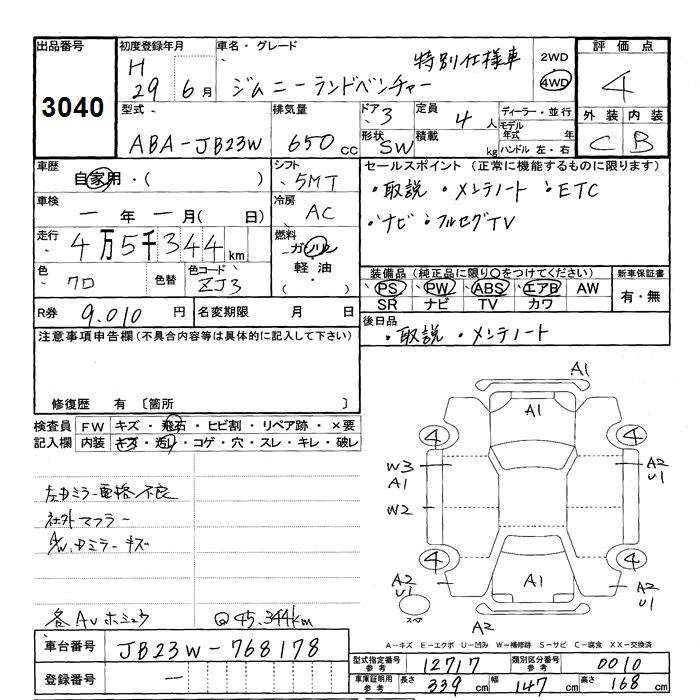 出品番号 初度登録年月 車名・グレード 評価点
3040 H 29 6月 ジムニーランドベンチャー 特別仕様車 2WD 4WD 4
型式 排気量 ドア 定員 ディーラー・並行 外装 内装
ABA-JB23W 650cc 3 4人 モデル年式 年 C B
形状 SW 積載 kg ハンドル 左・右
車歴 自家用・( ) シフト 5MT セールスポイント (正常に機能するものに限ります)
・取説 ・メンテノート ・ETC
車検 一年一月(日) 冷房 AC
・ナビ ・フルセグTV
走行 4万5千344km 燃料 ガソリン
軽油
( )
色 クロ 色替 色コード ZJ3
装備品 (純正品に限り○をつけてください) 新車保証書
PS PW ABS エアB AW 有・無
SR ナビ TV カワ
R券 9.010円 名変期限 月 日
後日品 ・取説 ・メンテノート
注意事項申告欄(不具合内容等は具体的に記入して下さい)
修復歴 有 〔箇所 〕
検査員 FW キズ・飛石・ヒビ割・リペア跡・×要
記入欄 内装 キズ・汚・コゲ・穴・スレ・キレ・破レ
社外マフラー
ミラーキズ
@45.344km
A1
A1
4 4
W3 A2
A1 U1
W2
4 4
A2 A1 A2
U1 U1
スペア
A2
A-キズ E-エクボ U-凹み W-補修跡 S-サビ C-腐食 XX-交換済
車台番号 JB23W-768178
型式指定番号 参考 12717 類別区分番号 参考 0010
登録番号 ー
車庫証明用 参考 長さ 339cm 幅 147cm 高さ 168cm